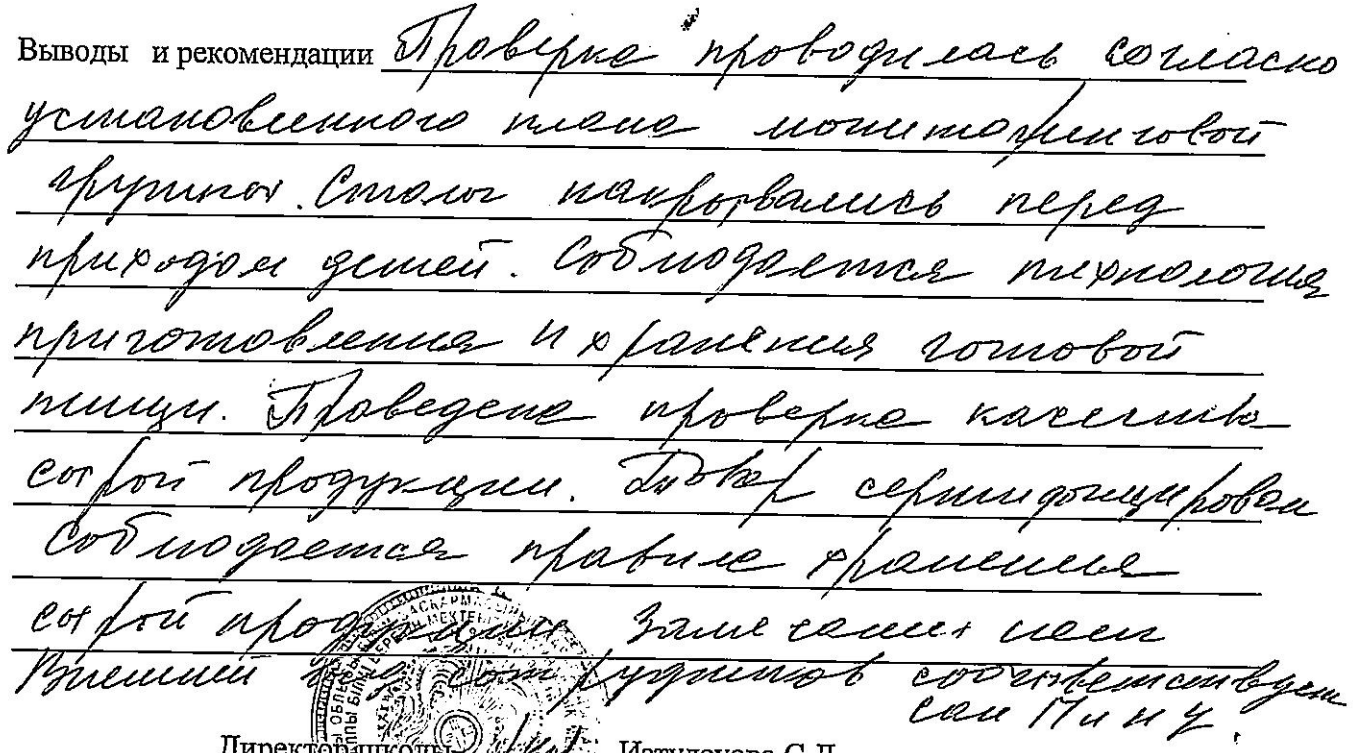 Выводы и рекомендации Проверка проводилась согласно
установленного плана мониторинговой
группы. Столы накрывались перед
приходом детей. Соблюдается технология
приготовления и хранения готовой
пищи. Проведена проверка качества
сырой продукции. Товар сертифицирован
Соблюдается правила хранения
сырой продукции Замечаний нет
Внешний вид сотрудников соответствует
сан Пину.
Директор школы С.Д.